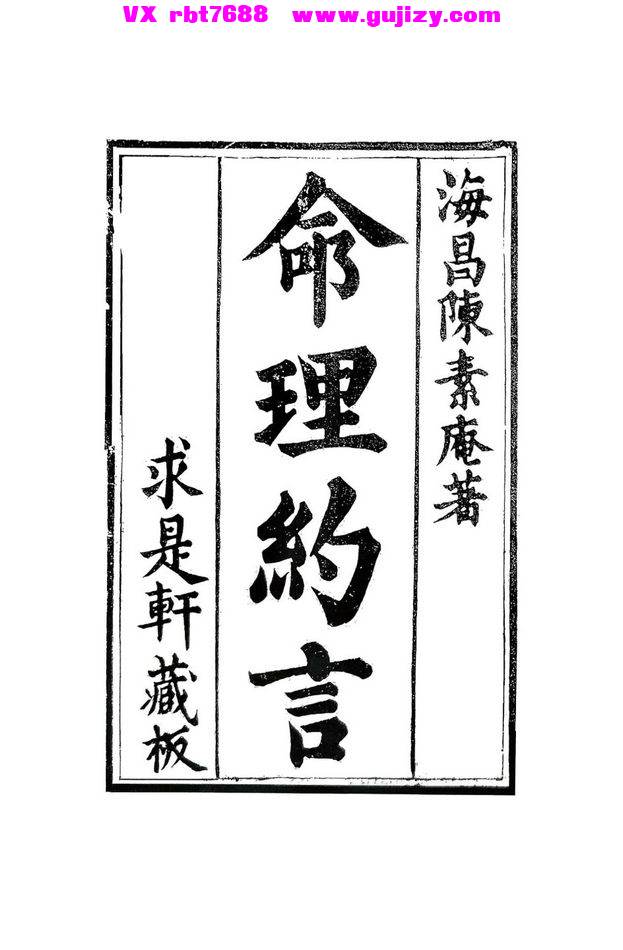 VX rbt7688 www.gujizy.com
海昌陳素庵著
命理約言
求是軒藏板